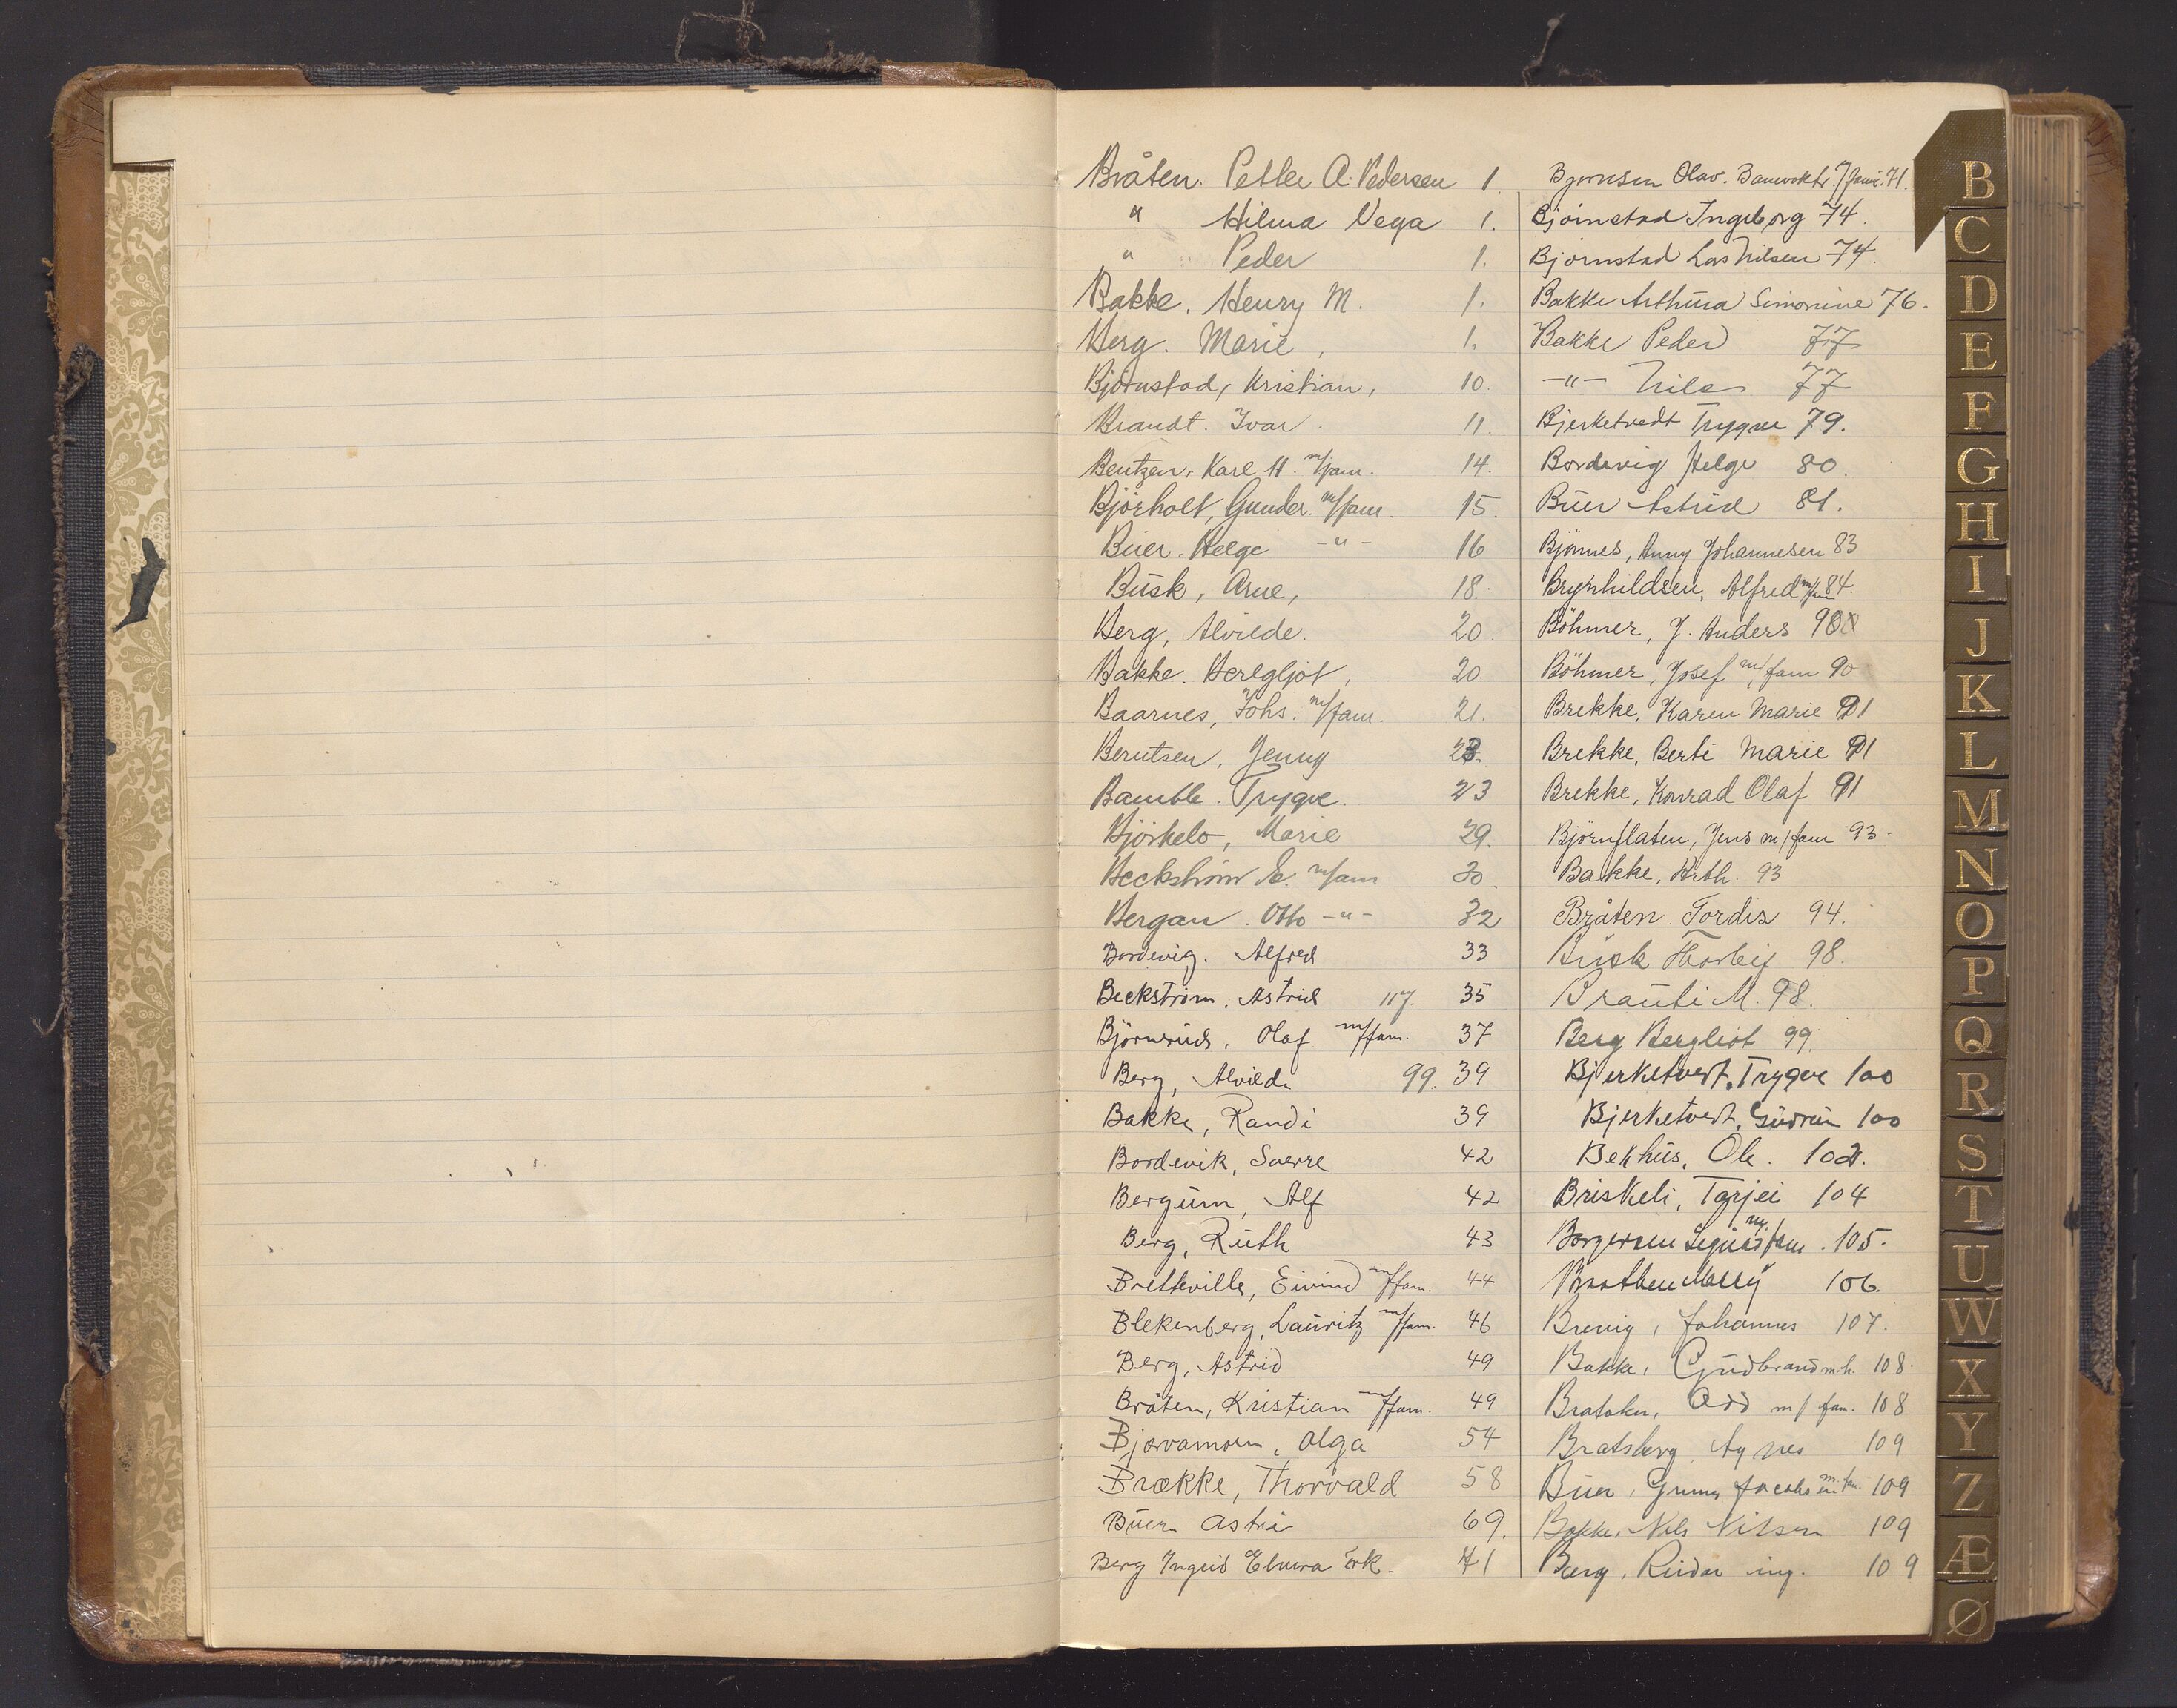 Bråten. Petter A. Pedersen 1.
" Hilma Vega 1.
" Peder 1.
Bakke, Henry M. 1.
Berg. Marie, 1.
Bjørnstad, Kristian, 10.
Brandt. Ivar. 11.
Bentzen, Karl H. m/fam. 14.
Bjørholt, Gunder. m/fam. 15.
Buer. Helge -"- 16
Busk, Arne, 18.
Berg, Alvilde. 20.
Bakke. Bergljot, 20.
Baarnes, Johs. m/fam. 21.
Berntsen, Jenny 23.
Bamble. Trygve. 23
Bjørkelo, Marie 29.
Beckstrøm E. m/fam 30.
Bergan. Otto -"- 32
Bordevig. Alfred 33
Beckstrøm, Astrid 117. 35
Björnrud, Olaf m/fam. 37
Berg, Alvilde 99. 39
Bakke, Randi 39
Bordevik, Sverre 42
Bergum, Alf 42
Berg, Ruth 43
Bretteville, Eivind m/fam. 44
Blekenberg, Lauritz m/fam. 46
Berg, Astrid 49
Bråten, Kristian m/fam. 49
Bjørvamoen, Olga 54
Brække, Thorvald 58
Buer Astri 69.
Berg Ingrid Elvira 71
Bjørnsen Olav. Banevokter. 71.
Bjørnstad Ingeborg 74.
Bjørnstad Lars Nilsen 74.
Bakke Arthura Simonine 76.
Bakke Peder 77
-"- Nils 77
Bjerketvedt Trygve 79.
Bordevig Helge 80.
Buer Astrid 81.
Bjönnes, Anny Johannesen 83
Brynhildsen, Alfred m/fam 84.
Böhmer, J. Anders 90
Böhmer, Josef m/fam 90
Brekke, Karen Marie 91
Brekke, Berti Marie 91
Brekke, Konrad Olaf 91
Björnflaten, Jens m/fam 93.
Bakke, Krth. 93
Bråten. Tordis 94.
Busk Thorleif 98.
Brauti M. 98.
Berg Bergliot 99.
Bjerketvedt, Trygve 100
Bjerketvedt, Gudrun 100
Bekhus, Ole. 102.
Briskeli, Tarjei 104
Borgersen Sigurd m/fam. 105.
Braathen Marry 106.
Brevig, Johannes 107.
Bakke, Gudbrand m.h. 108.
Odd m/fam. 108
Bratsberg Agnes 109
Buer, Gunnar Jacobsen m.fam. 109
Bakke, Nils Nilsen 109
Berg, Reidar ing. 109
B
C
D
E
F
G
H
I
J
K
L
M
N
O
P
Q
R
S
T
U
W
X
Y
Z
Æ
Ø